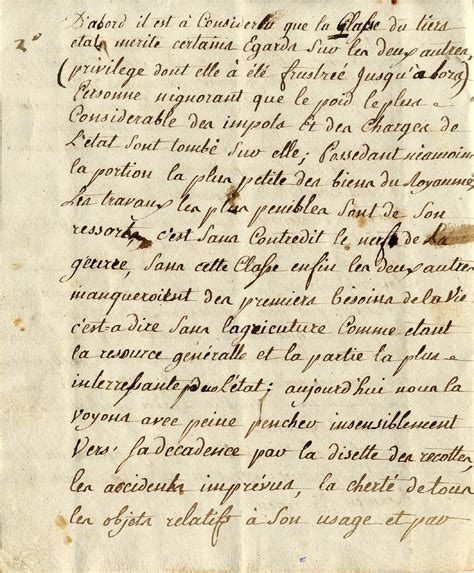 2° D'abord il est à Considerer que la Classe du tiers
etat merite certains Egards Sur les deux autres,
(privilege dont elle à été frustreé Jusqu'abors)
Personne nignorant que le poid le plus
Considerable des impots Et des Charges de
L'état Sont tombé Sur elle; Possedant néamoins
la portion la plus petite des biens du Royaume,
Les travaux les plus penibles Sont de Son
ressorts, c'est Sans Contredit le nerf de la
guerre, Sans cette Classe enfin les deux autres
manqueroient des premiers besoins de la Vie
c'est-a dire Sans lagricuture Comme etant
la resource généralle et la partie la plus
interressante de l'état; aujourd'hui nous la
Voyons avec peine pencher insensiblement
Vers Sa decadence par la disette des recottes
les accidents imprévus, la cherté de tous
les objets relatifs à Son usage et par